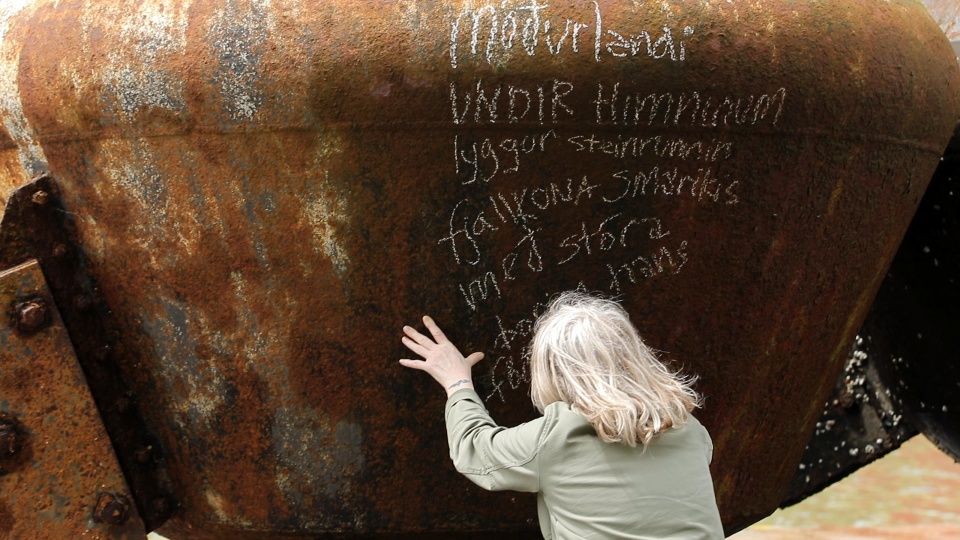 Móðurlandi
UNDIR Himninum
lyggur steinrunnin
fjallKONA smárikis
með stóra
hans